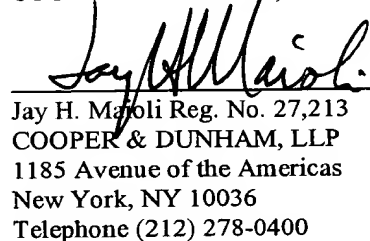 Jay H Maioli
Jay H. Maioli Reg. No. 27,213
COOPER & DUNHAM, LLP
1185 Avenue of the Americas
New York, NY 10036
Telephone (212) 278-0400